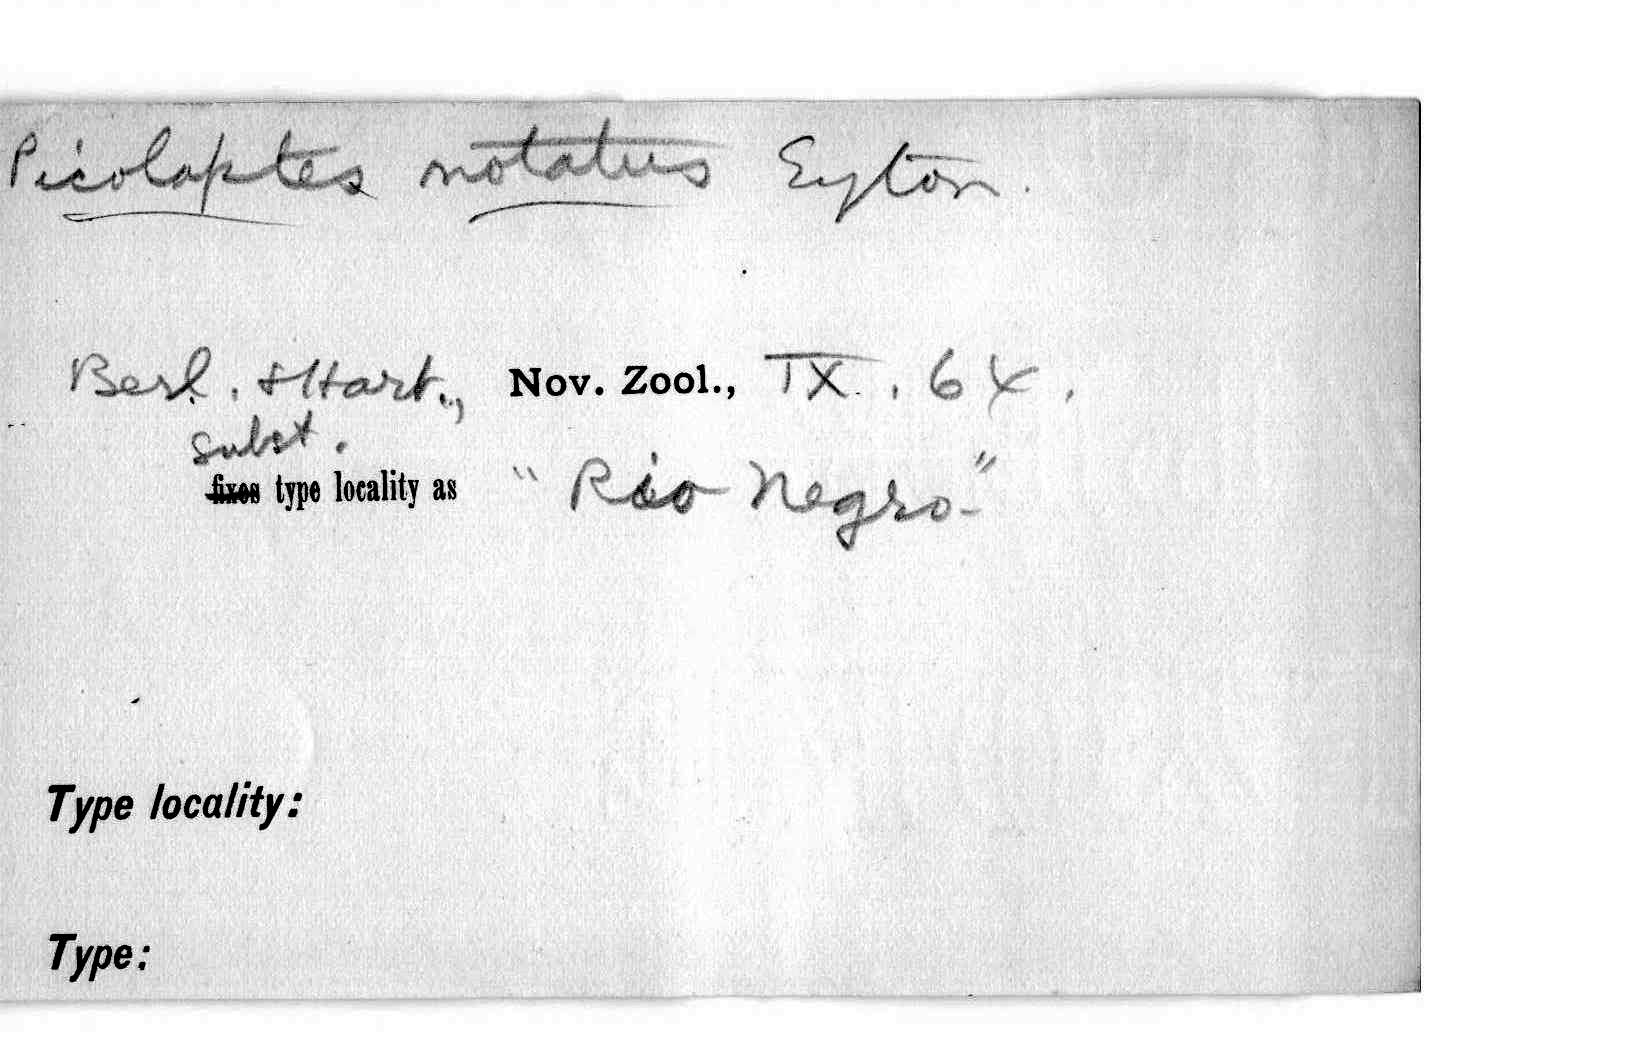 Picolaptes notatus Eyton.
Berl. & Hart., Nov. Zool., IX. 64.
subst.
fixes type locality as "Rio Negro."
Type locality:
Type: